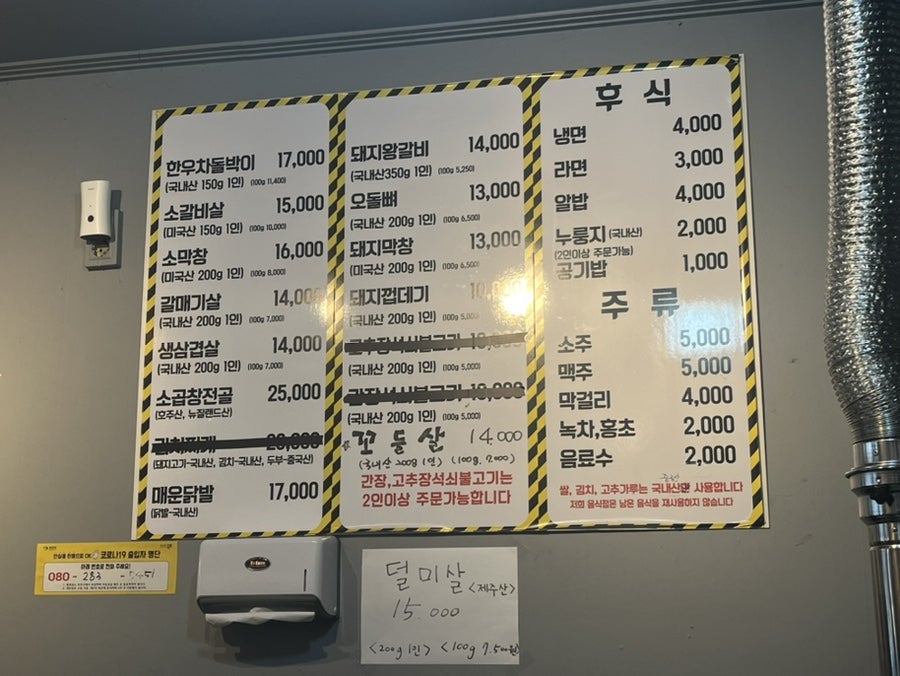 한우차돌박이 17,000
(국내산 150g 1인) (100g 11,400)
소갈비살 15,000
(미국산 150g 1인) (100g 10,000)
소막창 16,000
(미국산 200g 1인) (100g 8,000)
갈매기살 14,000
(국내산 200g 1인) (100g 7,000)
생삼겹살 14,000
(국내산 200g 1인) (100g 7,000)
소곱창전골 25,000
(호주산, 뉴질랜드산)
(돼지고기-국내산, 김치-국내산, 두부-중국산)
매운닭발 17,000
(닭발-국내산)
돼지왕갈비 14,000
(국내산350g 1인) (100g 5,250)
오돌뼈 13,000
(국내산 200g 1인) (100g 6,500)
돼지막창 13,000
(미국산 200g 1인) (100g 6,500)
돼지껍데기 10,000
(국내산 200g 1인) (100g 5,000)
고추장석쇠불고기 10,000
(국내산 200g 1인) (100g 5,000)
간장석쇠불고기 10,000
(국내산 200g 1인) (100g 5,000)
꼬들살 14,000
(국내산 200g 1인) (100g. 7,000)
간장,고추장석쇠불고기는
2인이상 주문가능합니다
후식
냉면 4,000
라면 3,000
알밥 4,000
누룽지 (국내산) 2,000
(2인이상 주문가능)
공기밥 1,000
주류
소주 5,000
맥주 5,000
막걸리 4,000
녹차,홍초 2,000
음료수 2,000
쌀, 김치, 고추가루는 국내산만 사용합니다
저희 음식점은 남은 음식을 재사용하지 않습니다
코로나19 출입자 명단
아래 번호로 전화 주세요!
080-
덜미살 <제주산>
15.000
<200g 1인> <100g 7.500원>